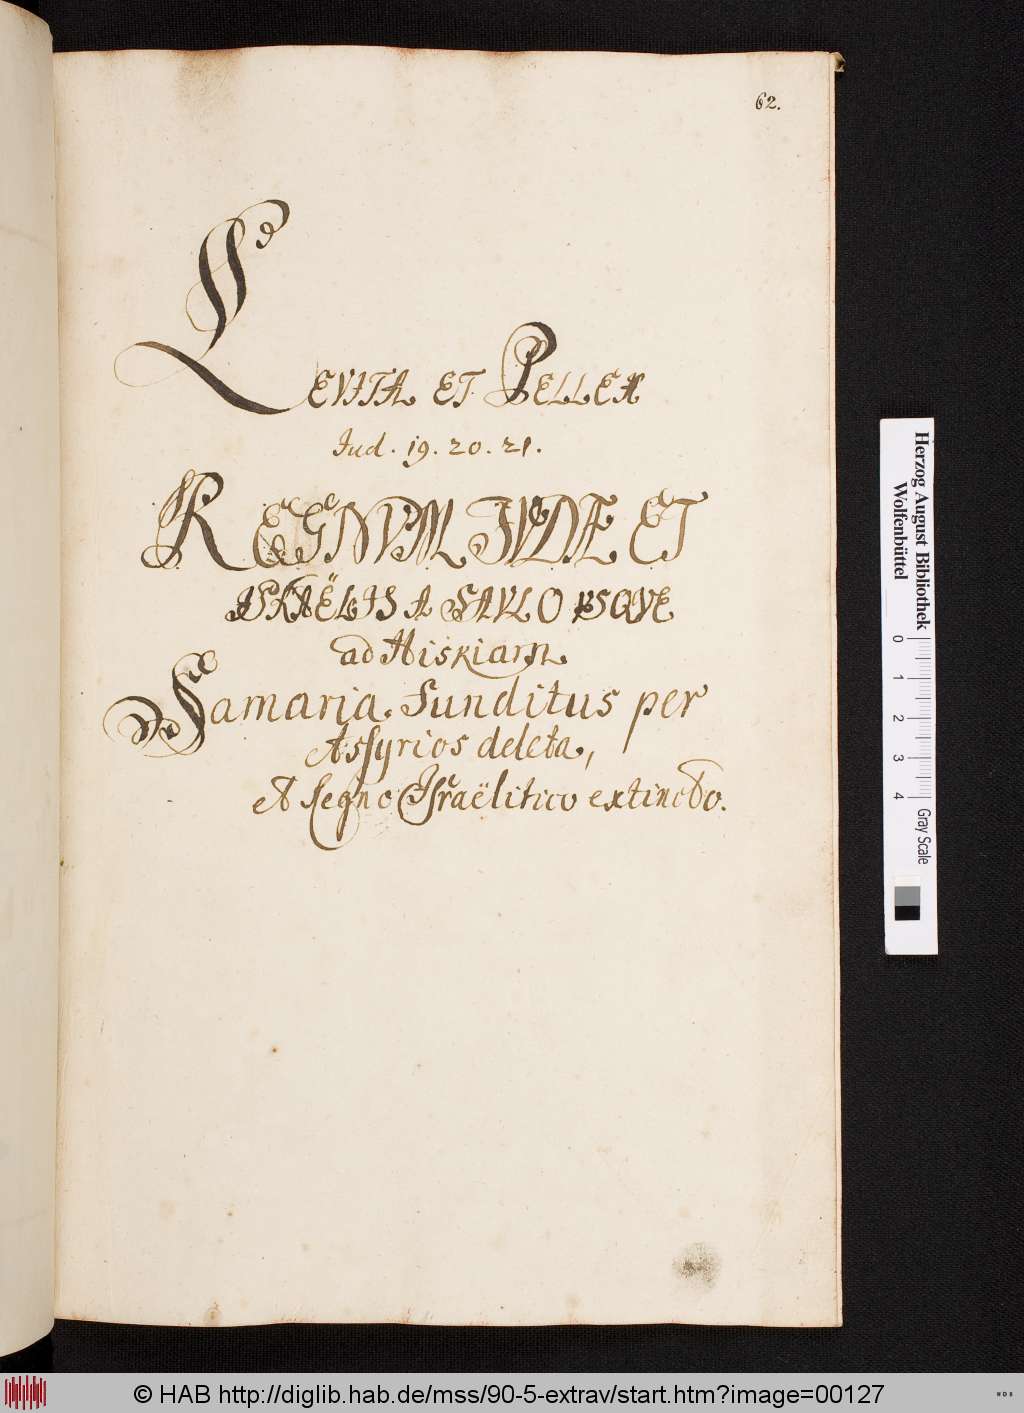 62.
LEVITA ET PELLEX
Jud. 19. 20. 21.
REGNVM IVDÆ ET
ISRAËLIS A SAVLO VSQVE
ad Hiskiam.
Samaria. funditus per
Assyrios deleta,
et Regno Israëlitico extincto.
Herzog August Bibliothek
Wolfenbüttel
0 1 2 3 4
Gray Scale
© HAB http://diglib.hab.de/mss/90-5-extrav/start.htm?image=00127
WDB